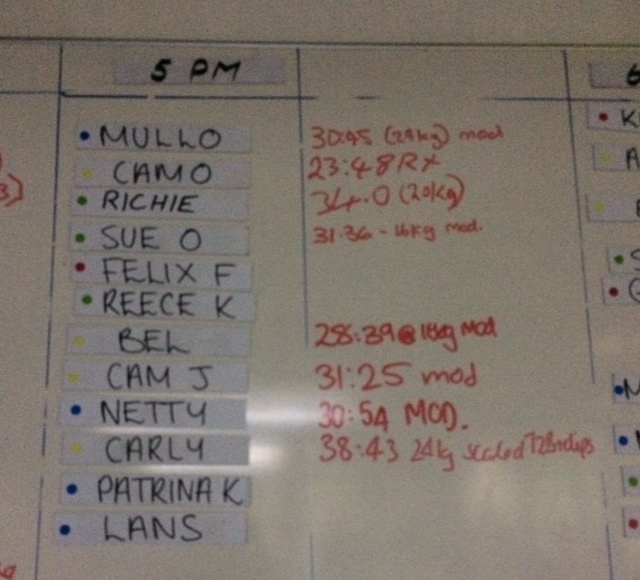 5 PM
6
MULLO 30:45 (24kg) mod
CAMO 23:48 RX
RICHIE 34.0 (20kg)
SUE O 31.36 - 16kg mod.
FELIX F
REECE K
BEL 28:39 @ 16kg MOD
CAM J 31:25 mod
NETTY 30:54 MOD.
CARLY 38:43 24kg scaled
PATRINA K
LANS